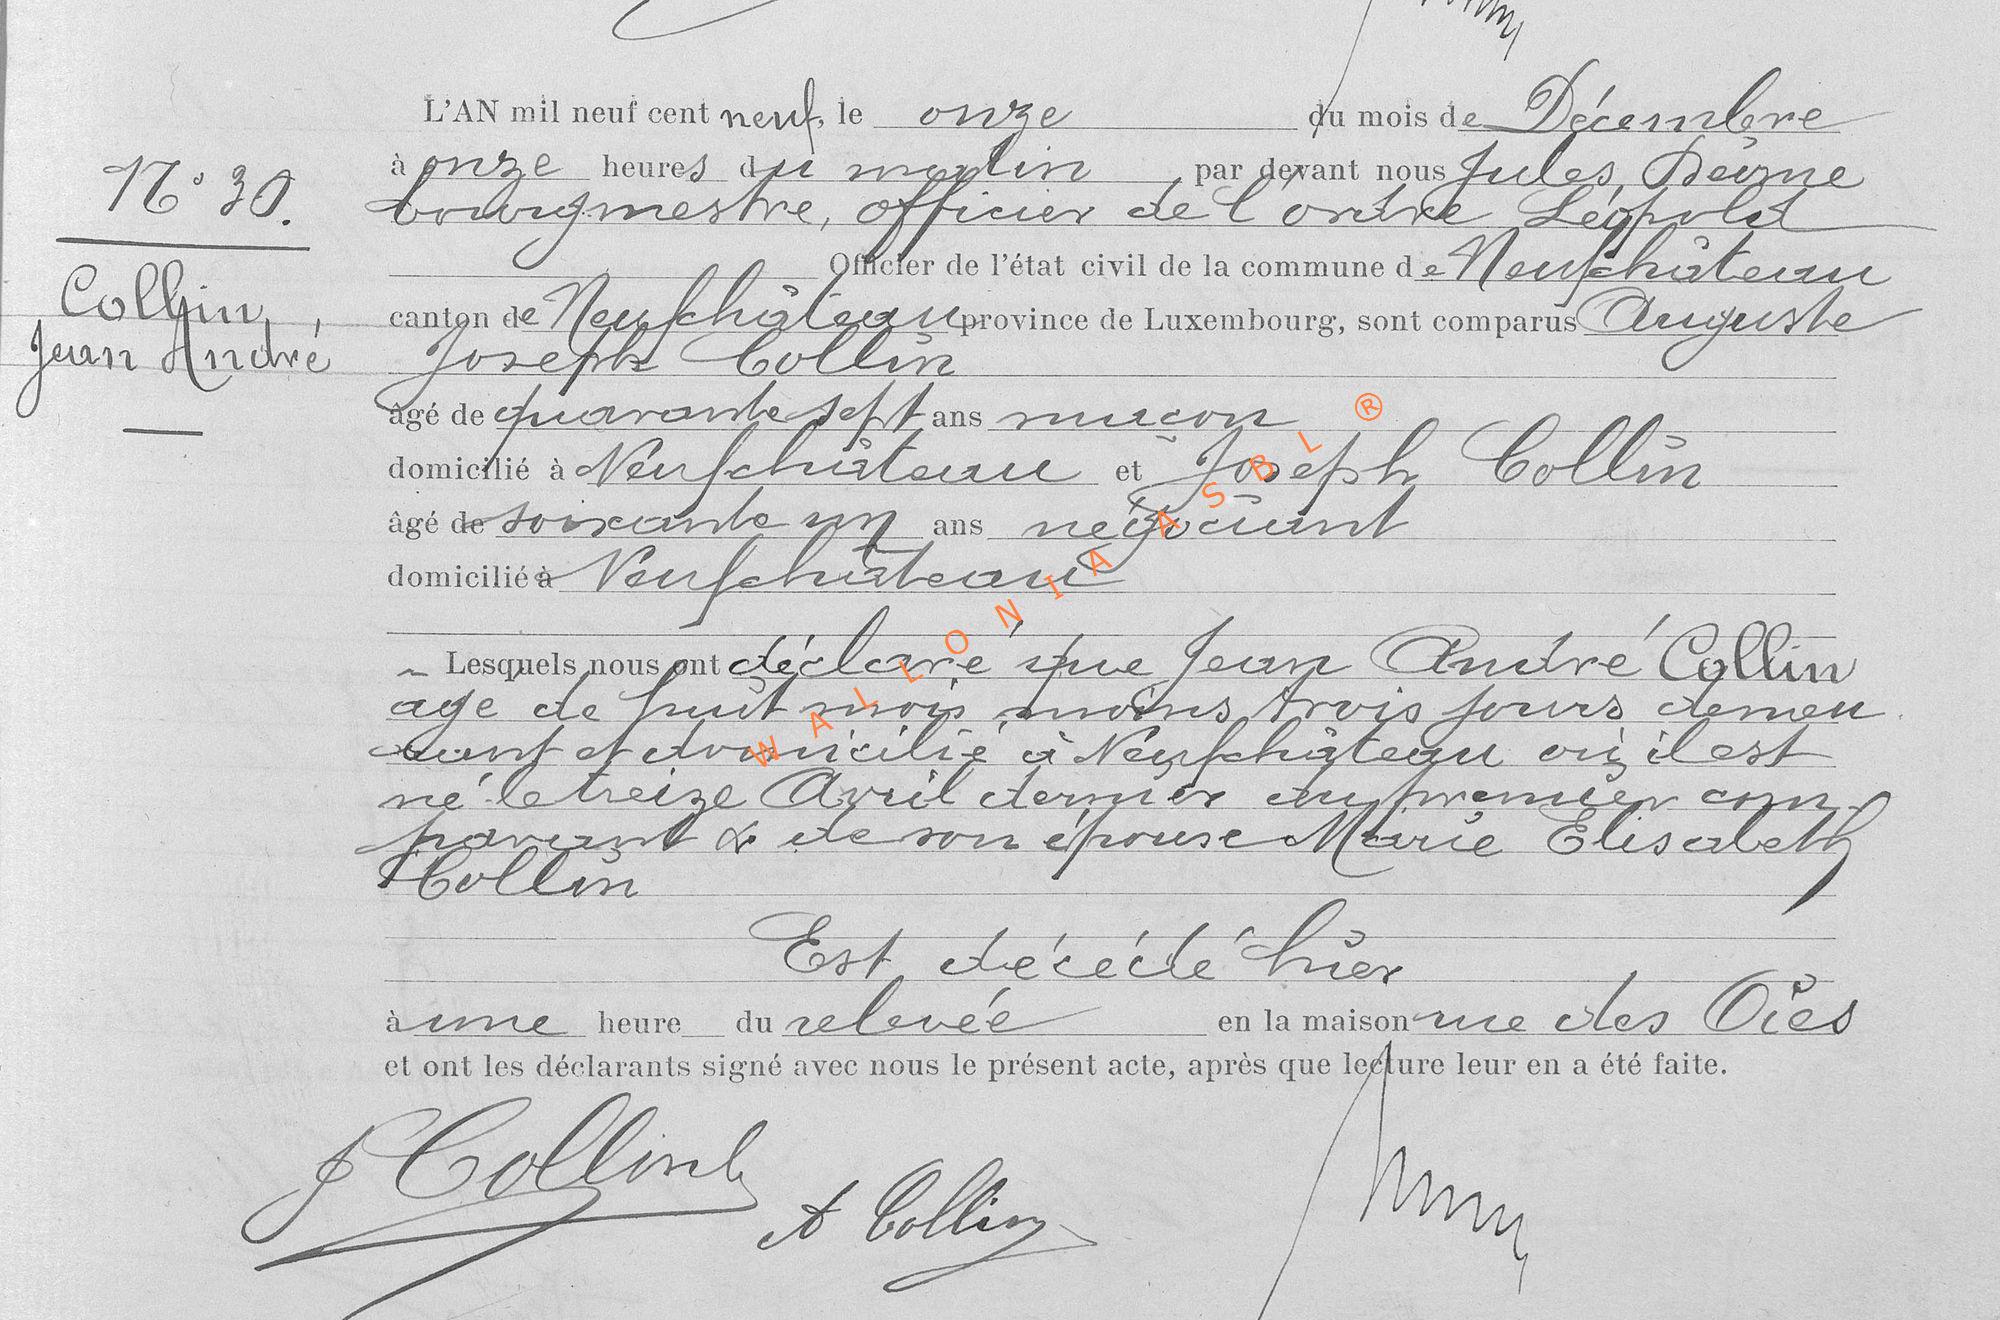 L'AN mil neuf cent neuf, le onze du mois de Décembre
à onze heures du matin par devant nous Jules
bourgmestre, officier de l'ordre Léopold
Officier de l'état civil de la commune de Neufchâteau
canton de Neufchâteau province de Luxembourg, sont comparus Auguste
Joseph Collin
âgé de quarante sept ans maçon
domicilié à Neufchâteau et Joseph Collin
âgé de soixante un ans négociant
domicilié à Neufchâteau
Lesquels nous ont déclaré que Jean André Collin
âgé de huit mois moins trois jours demeu
rant et domicilié à Neufchâteau où il est
né le treize Avril dernier du premier com-
parant & de son épouse Marie Elisabeth
Collin
Est décédé hier
à une heure du relevée en la maison rue des Oies
et ont les déclarants signé avec nous le présent acte, après que lecture leur en a été faite.
N° 30.
Collin,
Jean André
J Collin
A Collin
WALLONIA ASBL ®